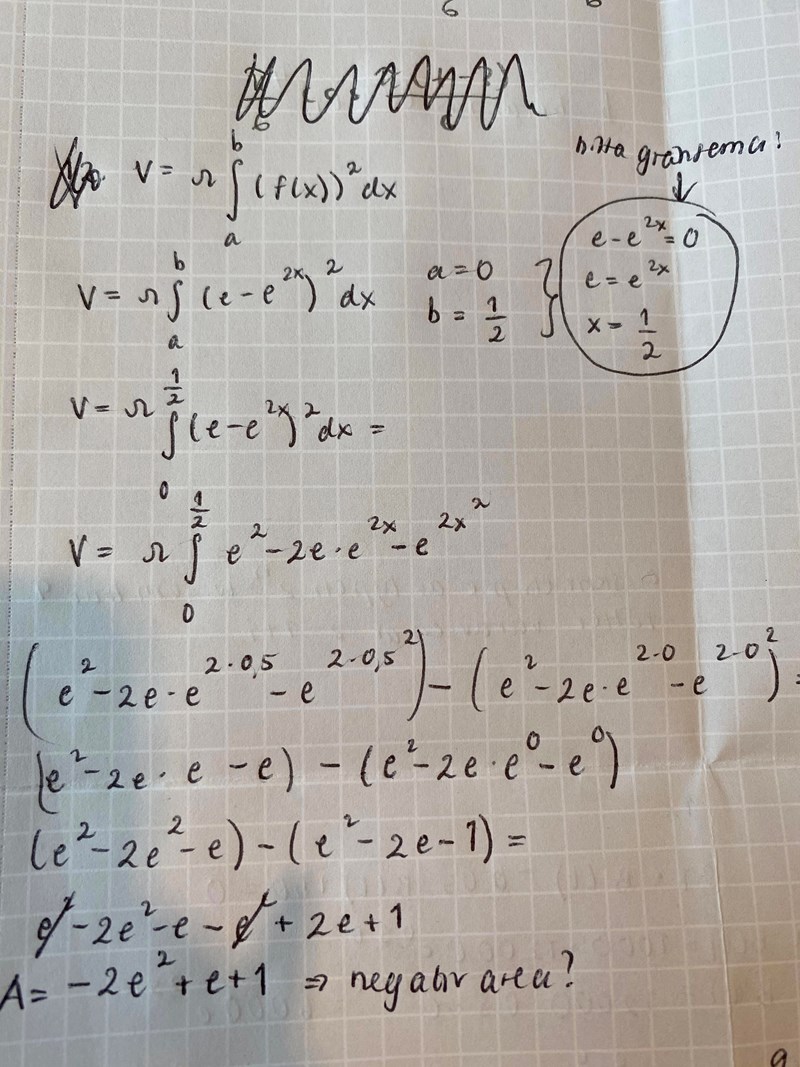 6
hitta gränserna!
V = π ∫_a^b (f(x))² dx
e - e^{2x} = 0
V = π ∫_a^b (e - e^{2x})² dx a = 0
b = 1/2
e = e^{2x}
x = 1/2
V = π ∫_0^{1/2} (e - e^{2x})² dx =
V = π ∫_0^{1/2} e² - 2e · e^{2x} - e^{2x²}
(e² - 2e · e^{2·0,5} - e^{2·0,5²}) - (e² - 2e · e^{2·0} - e^{2·0²}) =
(e² - 2e · e - e) - (e² - 2e · e⁰ - e⁰)
(e² - 2e² - e) - (e² - 2e - 1) =
e² - 2e² - e - e² + 2e + 1
A = -2e² + e + 1 ⇒ negativ area?
9